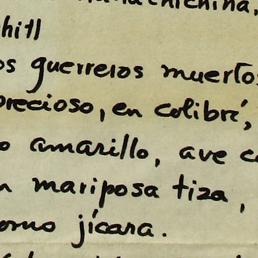 chichina.
hitl
os guerreros muertos
precioso, en colibrí,
o amarillo, ave c
n mariposa tiza,
omo jícara.